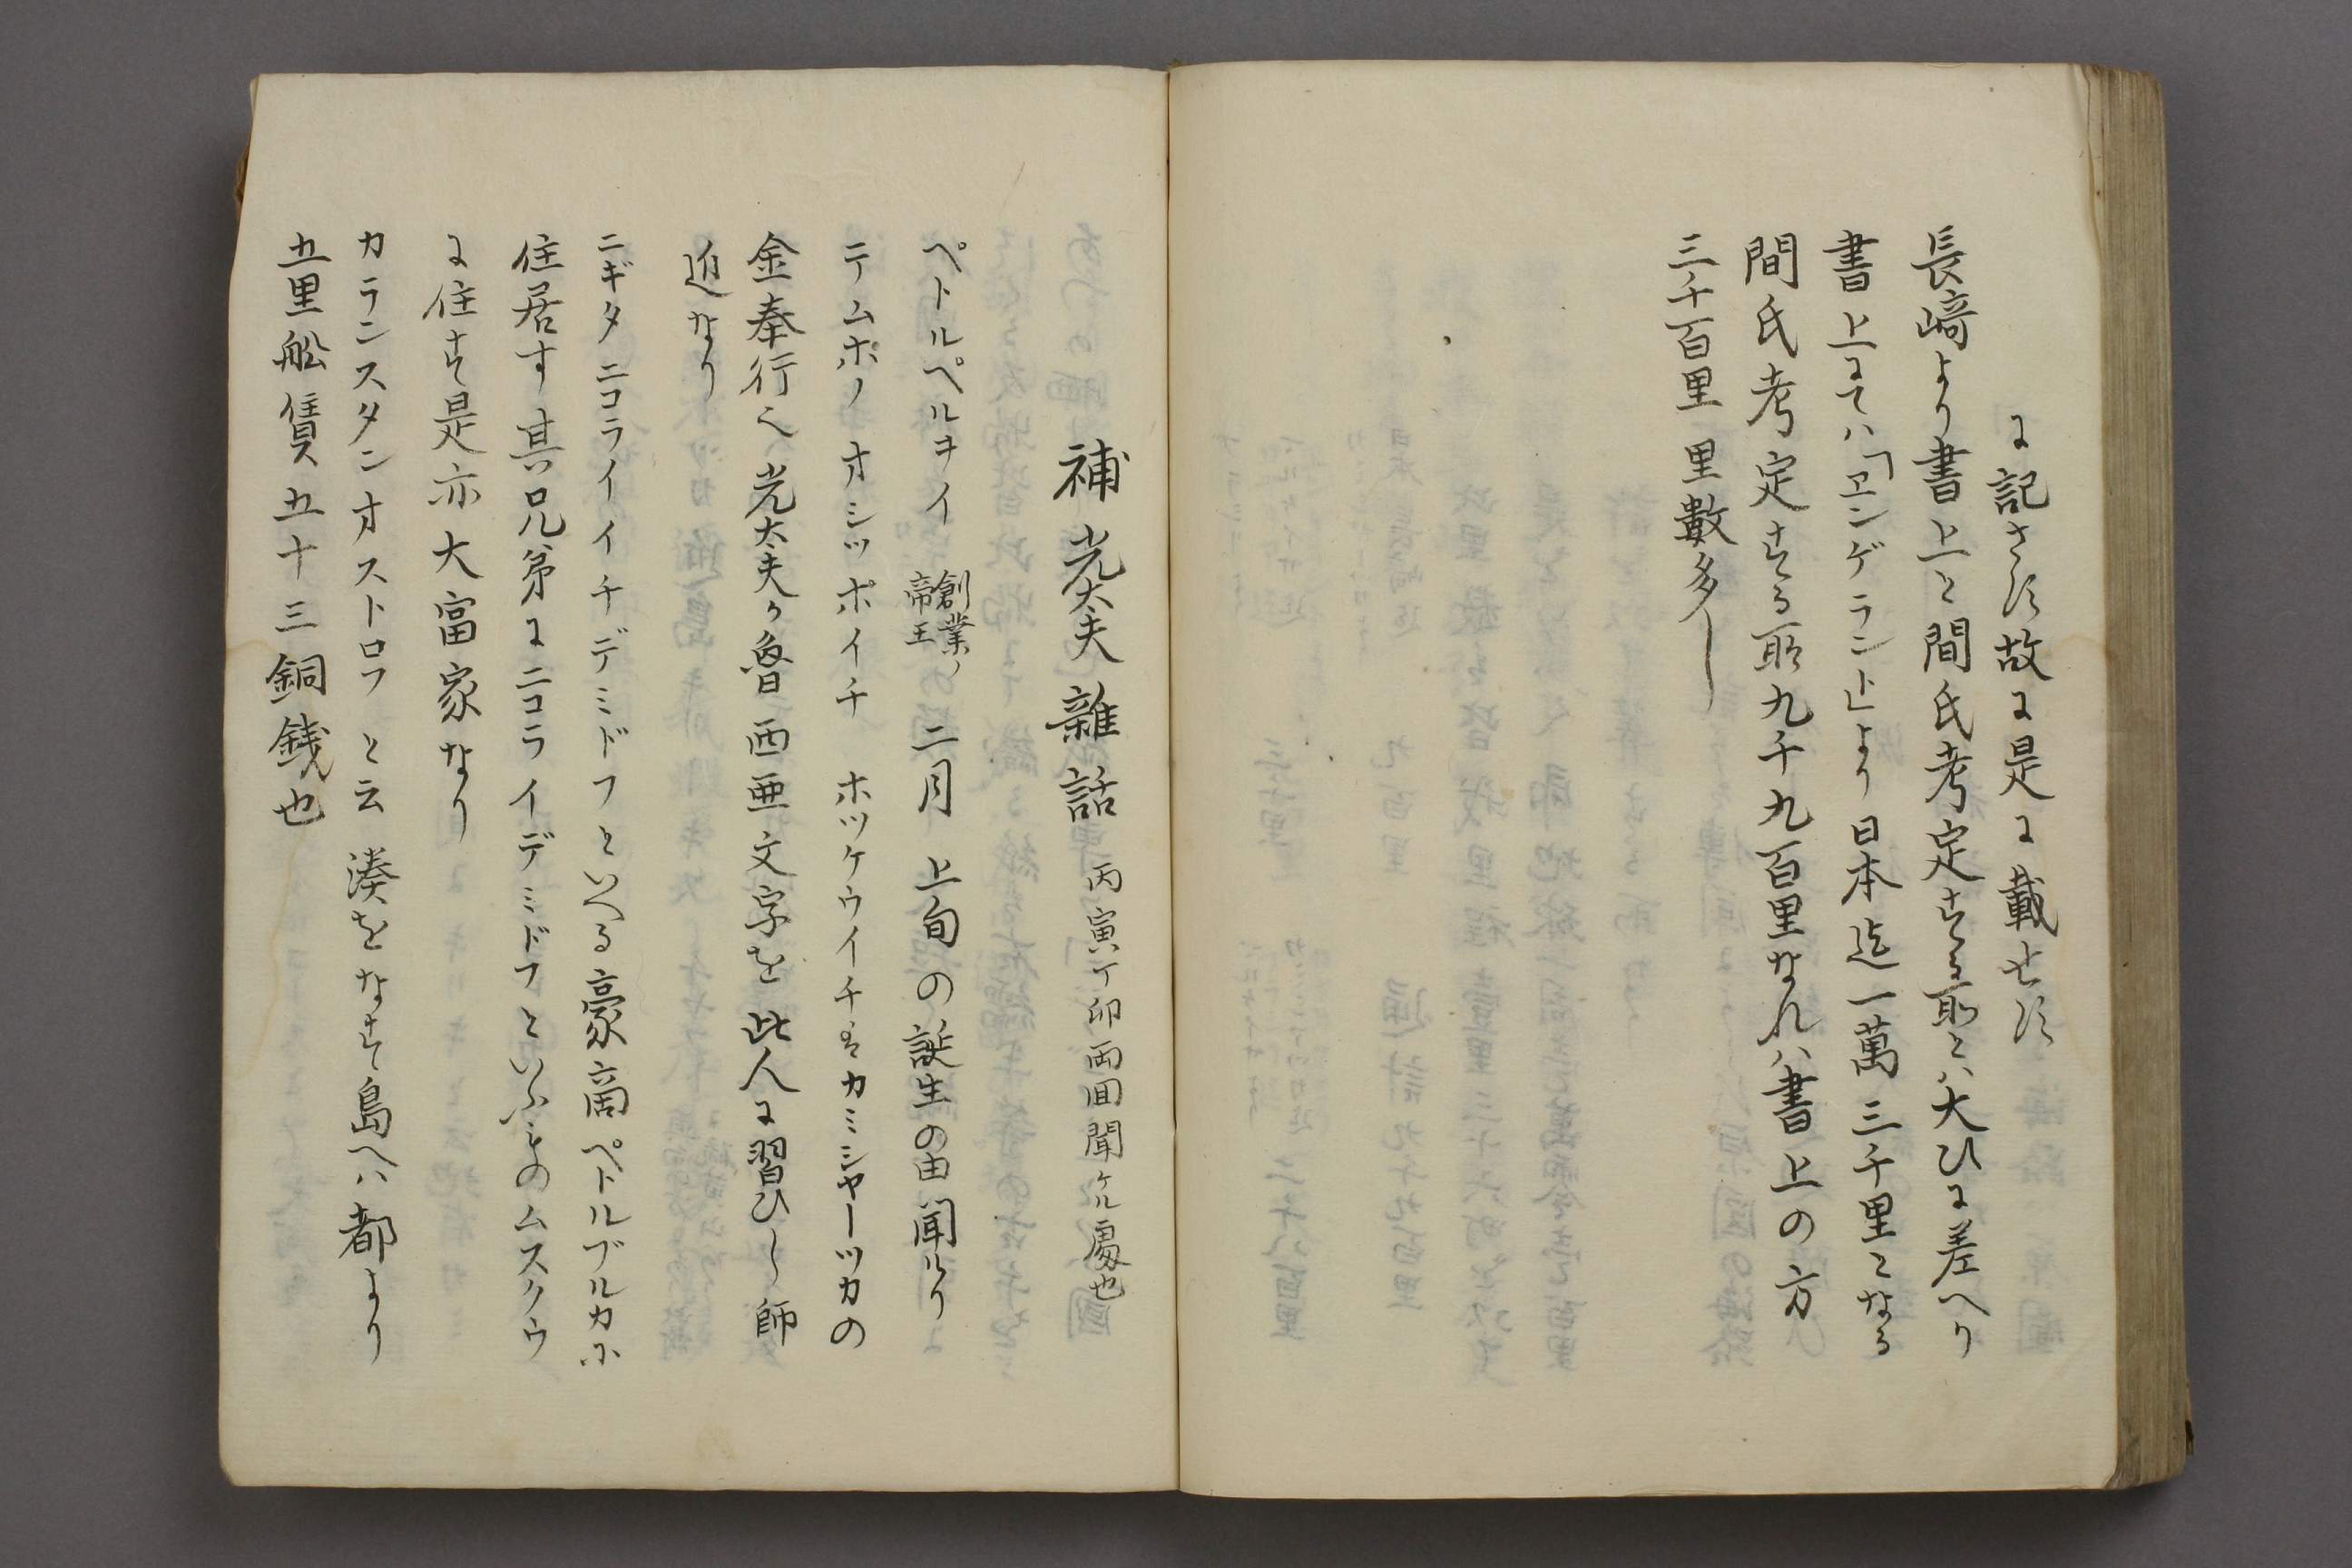 に記さす故に是に載せす
長﨑より書上と間氏考定する所とハ大ひに差へり
書上にてハ「ヱンゲラント」より日本迄一萬三千里となる
間氏考定する所九千九百里なれハ書上の方
三千百里里數多し
補光太夫雜話 丙寅丁卯両回聞ケル處也
ペトルペルヲイ 創業ノ帝王 二月上旬の誕生の由聞ケり
テムポノオシッポイチ ホツケウイチはカミシヤーツカの
金奉行へ光太夫か魯西亜文字を此人に習ひし師
迫なり
ニギタニコライイチデミドフといへる豪商ペトルブルカに
住居す其兄弟にニコライデミドフといふものムスクウ
に住す是亦大富家なり
カランスタンオストロフと云湊をなす島へハ都より
五里舩賃五十三銅銭也